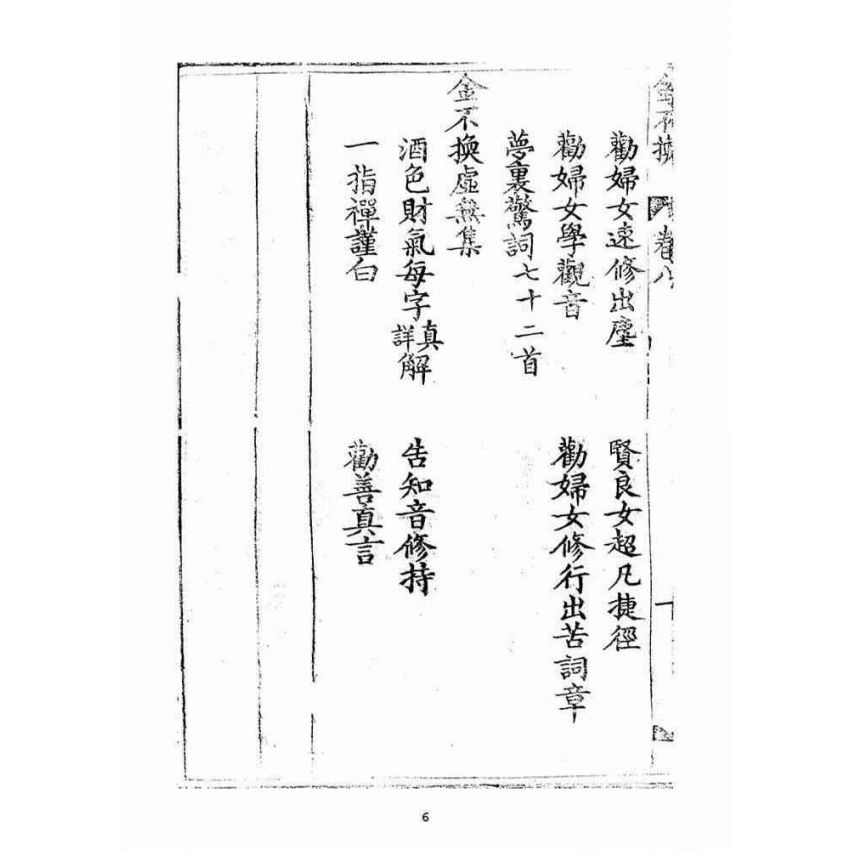 金不換 卷八 一
勸婦女速修出塵 賢良女超凡捷徑
勸婦女學觀音 勸婦女修行出苦詞章
夢裏驚詞七十二首
金不換虛無集
酒色財氣每字真詳解 告知音修持
一指禪謹白 勸善真言
6